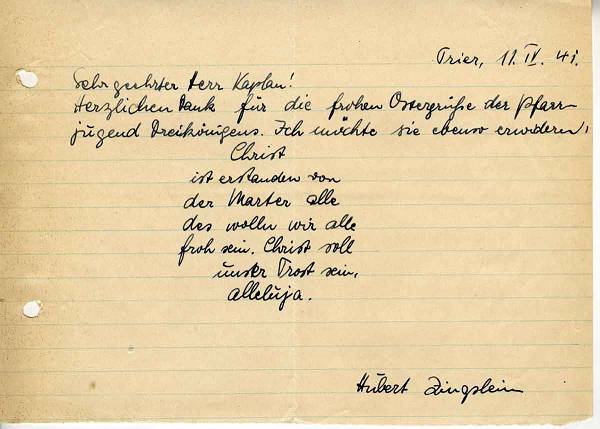 Trier, 11. IV. 41.
Sehr geehrter Herr Kaplan!
Herzlichen Dank für die frohen Ostergrüße der Pfarr-
jugend Dreikönigens. Ich möchte sie ebenso erwidern,
Christ
ist erstanden von
der Marter alle
des wolln wir alle
froh sein. Christ soll
unser Trost sein,
alleluja.
Hubert